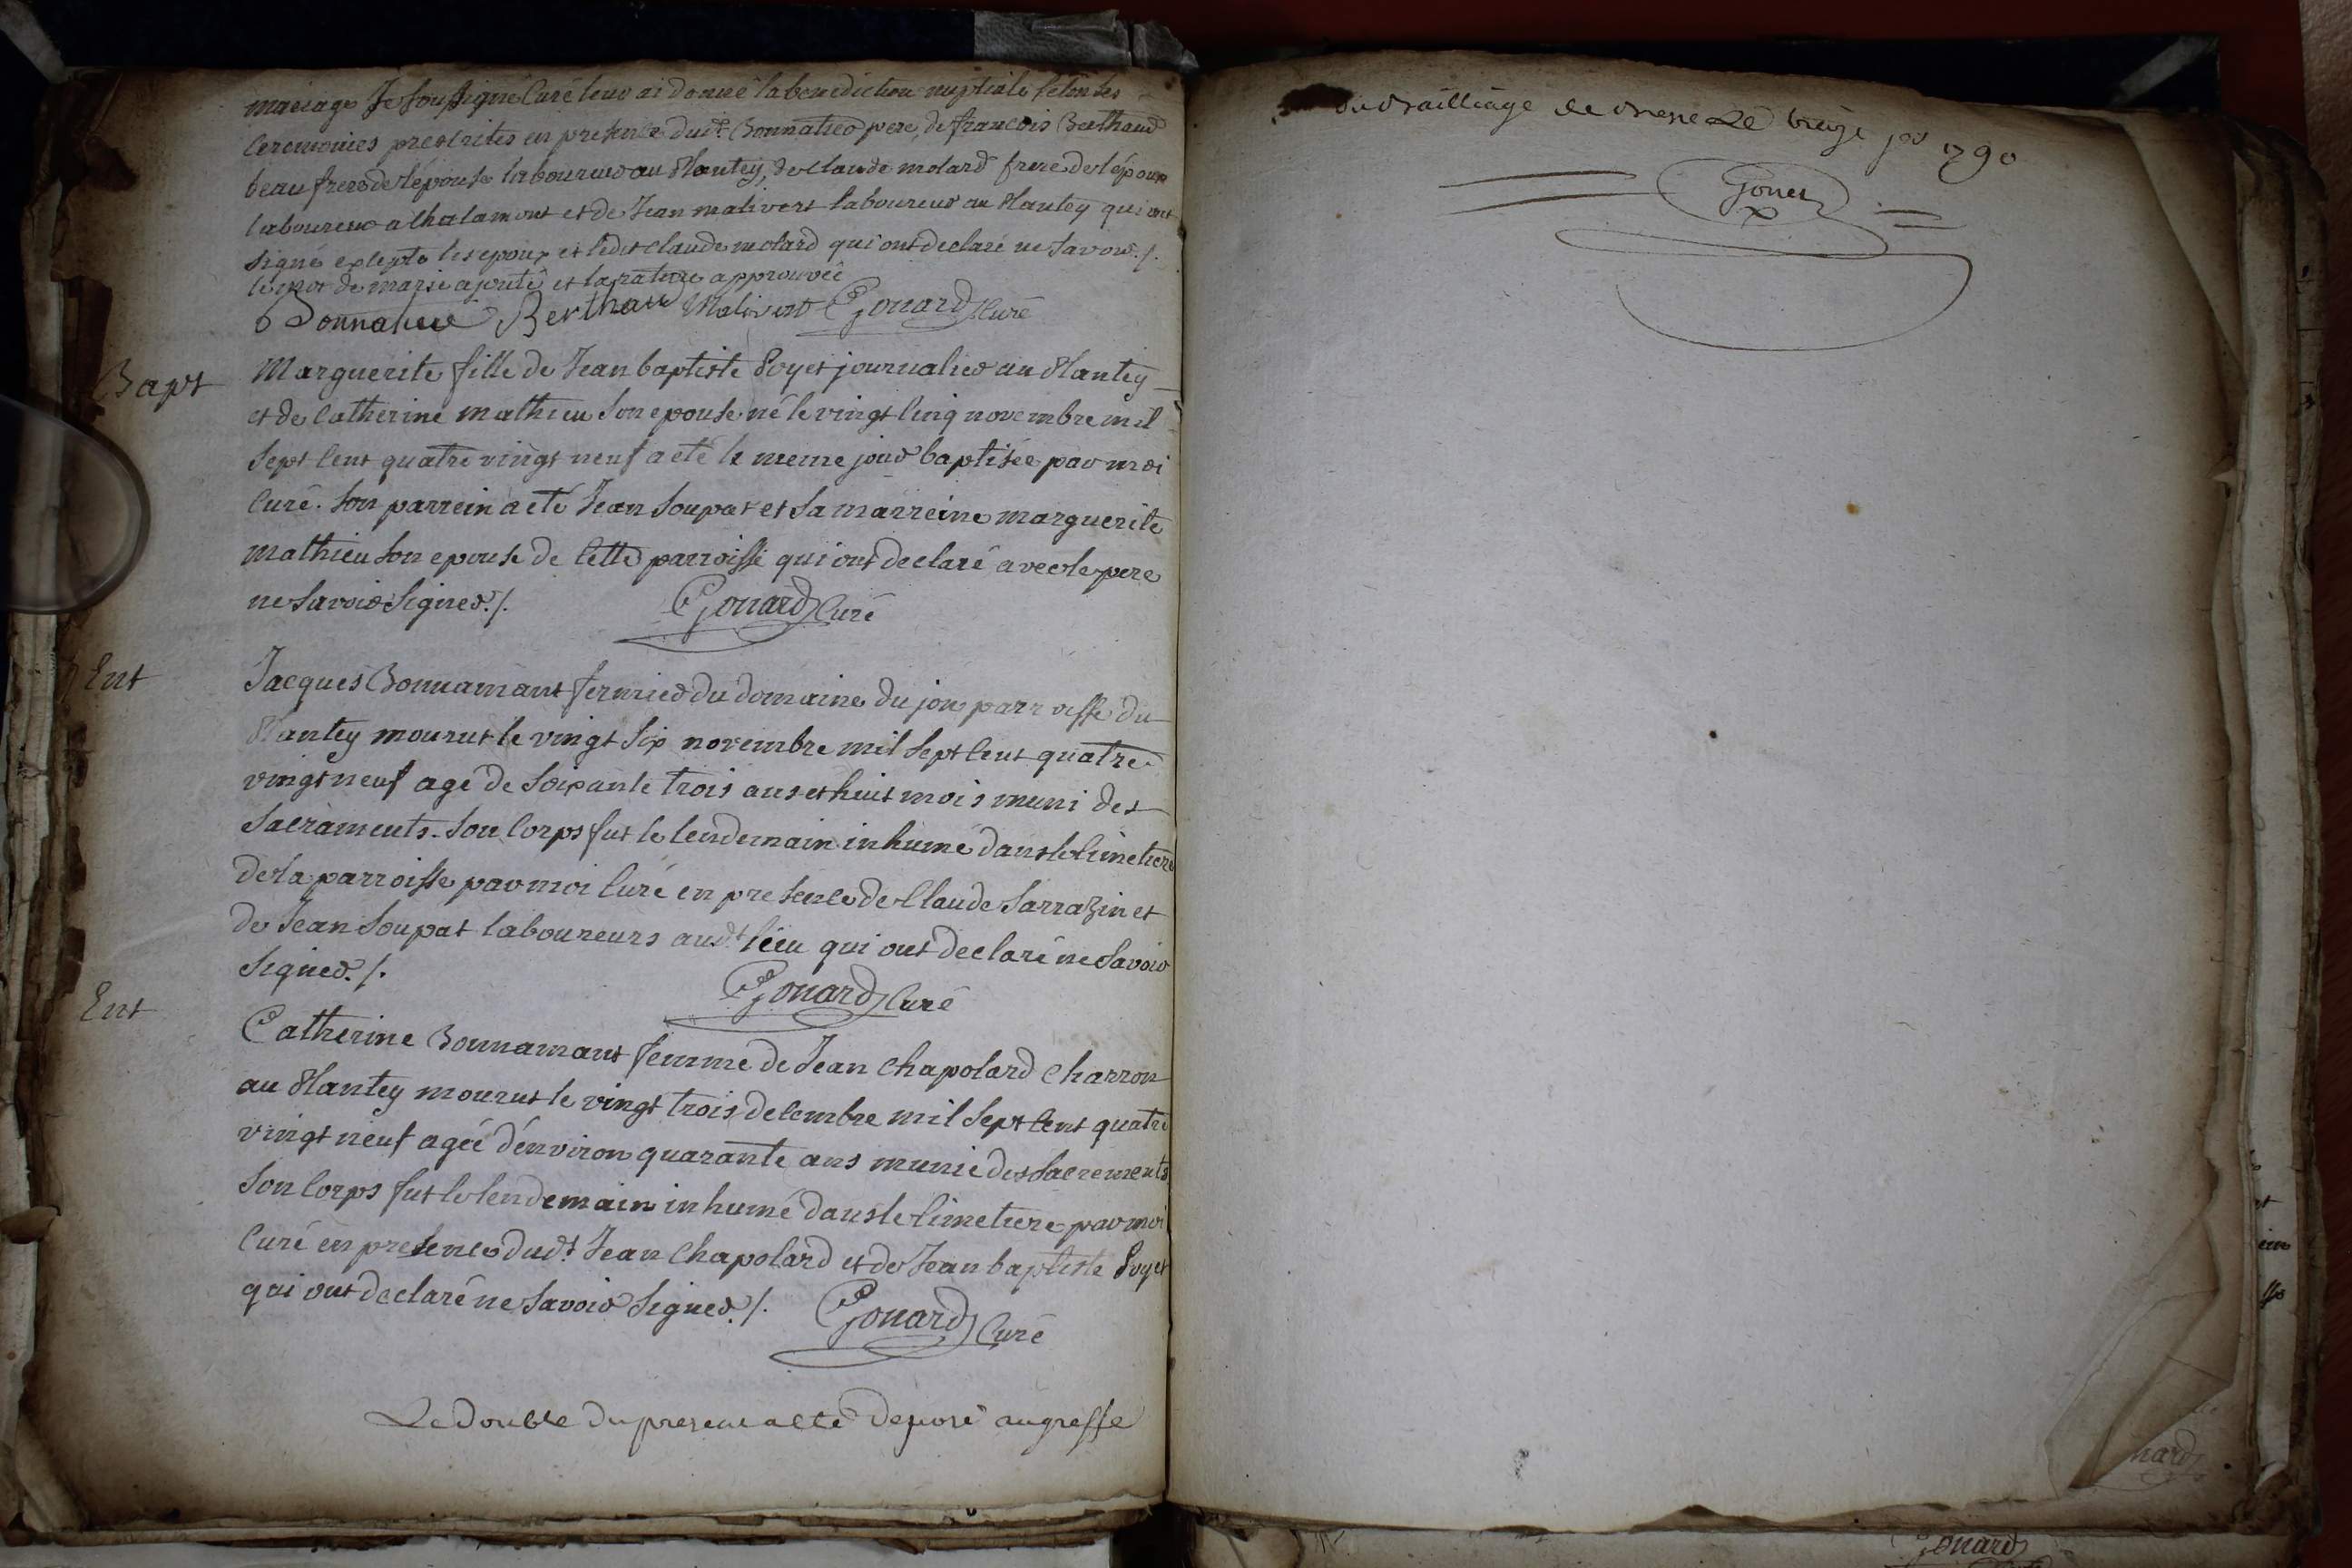 mariage Je soussigné Curé leur ai donné la benediction nuptiale selon les
ceremonies prescrites en presence dudt. Bonnatier pere, de françois Berthaud
beau frere de l'épouse laboureur au Plantey, de Claude molard frere de l'époux
laboureur a Chalamont et de Jean malivert laboureur au Plantey qui ont
signé excepté les epoux et ledit Claude molard qui ont declaré ne savoir ./.
le mot de marié ajouté et la rature approuvée
Berthaud Malivert Gonard Curé
Bapt
Marguerite fille de Jean baptiste Poyet journalier au Plantey
et de Catherine mathieu son epouse né le vingt cinq novembre mil
sept cent quatre vingt neuf a eté le meme jour baptisée par moi
Curé. son parrein a eté Jean Soupat et sa marreine marguerite
mathieu son epouse de cette parroisse qui ont declaré avec le pere
ne savoir signer ./. Gonard Curé
Ent
Jacques Bonnamant fermier du domaine du jon parroisse du
Plantey mourut le vingt six novembre mil sept cent quatre
vingt neuf agé de soixante trois ans et huit mois muni des
Sacraments. son corps fut le lendemain inhumé dans le cimetiere
de la parroisse par moi Curé en presence de Claude Sarrazin et
de Jean Soupat laboureurs audt. lieu qui ont declaré ne savoir
signer ./. Gonard Curé
Ent
Catherine Bonnamant femme de Jean Chapolard charron
au Plantey mourut le vingt trois decembre mil sept cent quatre
vingt neuf agée d'environ quarante ans munie des sacrements
son corps fut le lendemain inhumé dans le cimetiere par moi
Curé en presence dudt. Jean Chapolard et de Jean baptiste Poyet
qui ont declaré ne savoir signer ./. Gonard Curé
Le double du present a eté deposé au greffe
du Bailliage de Bresse Le treize 1790
nard
Gonard